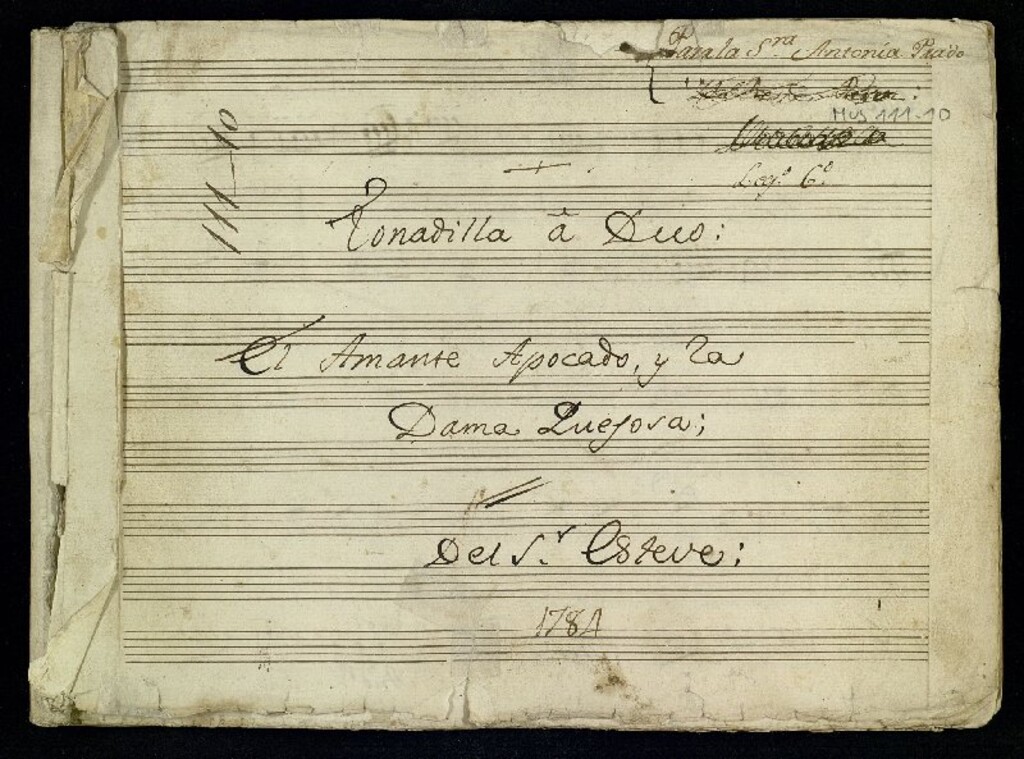 Para la S.ra Antonia Prado
MUS 111-10
Leg.º 6.º
111-10
Tonadilla â Duo:
El Amante Apocado, y la
Dama Quejosa;
Del S.r Esteve:
1781